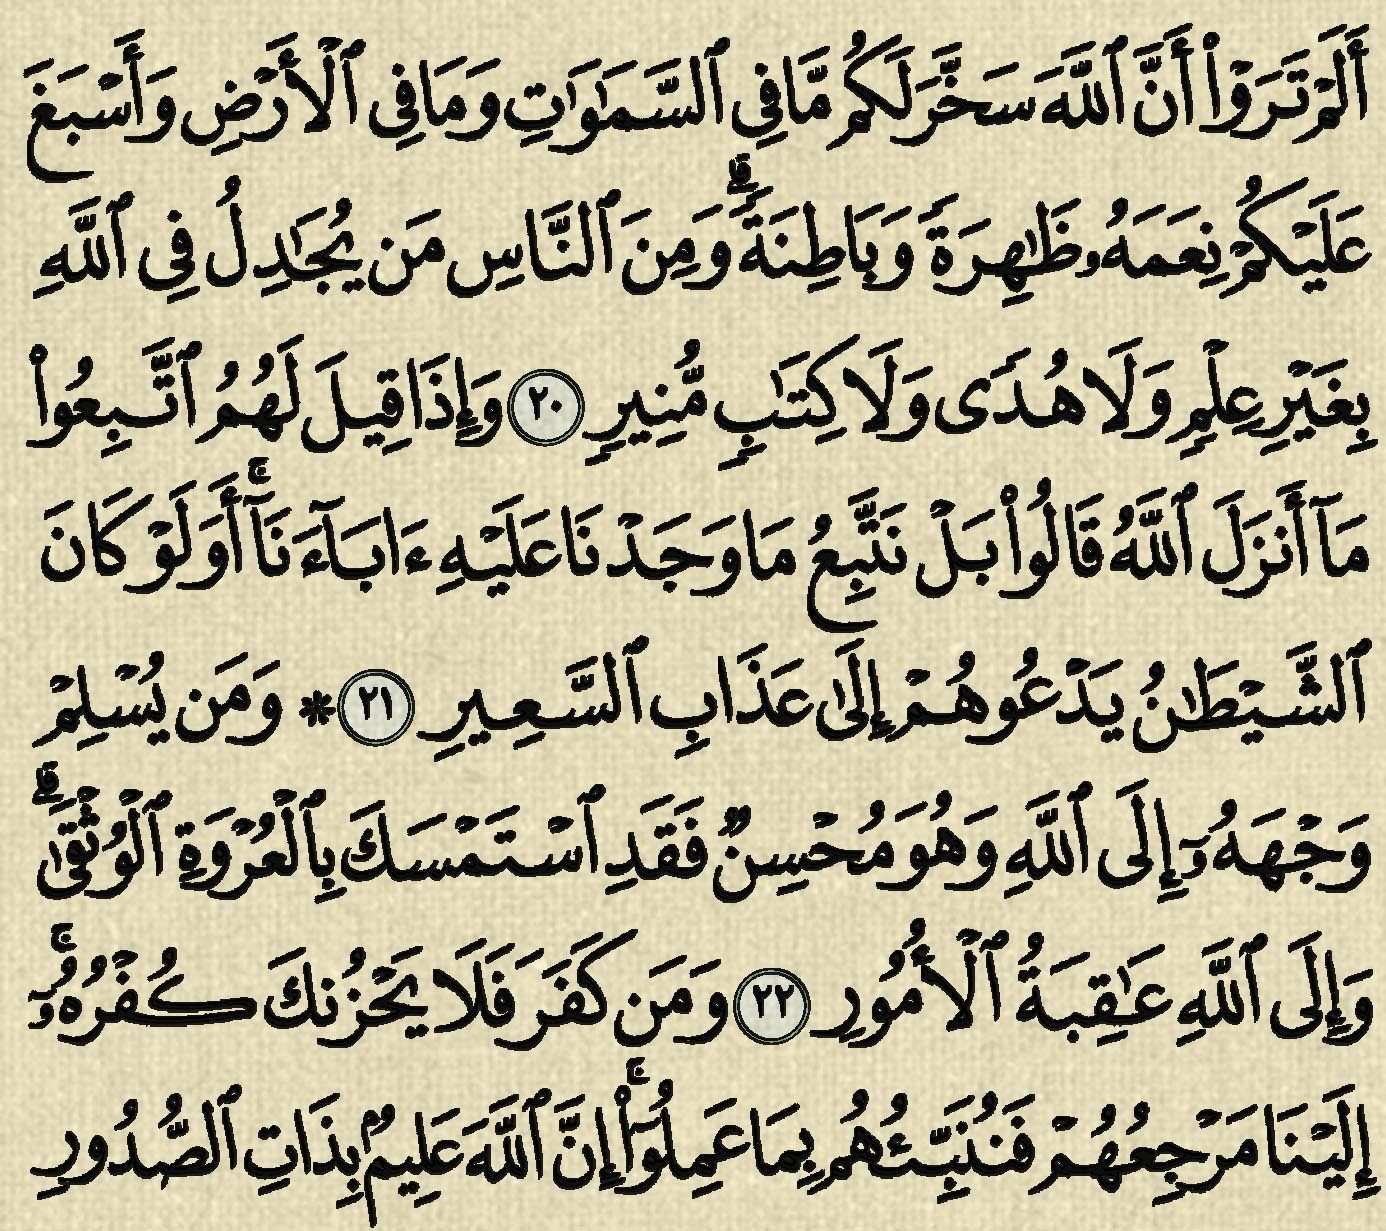 أَلَمْ تَرَوْا۟ أَنَّ ٱللَّهَ سَخَّرَ لَكُم مَّا فِى ٱلسَّمَـٰوَٰتِ وَمَا فِى ٱلْأَرْضِ وَأَسْبَغَ
عَلَيْكُمْ نِعَمَهُۥ ظَـٰهِرَةً وَبَاطِنَةً ۗ وَمِنَ ٱلنَّاسِ مَن يُجَـٰدِلُ فِى ٱللَّهِ
بِغَيْرِ عِلْمٍ وَلَا هُدًى وَلَا كِتَـٰبٍ مُّنِيرٍ ٢٠ وَإِذَا قِيلَ لَهُمُ ٱتَّبِعُوا۟
مَآ أَنزَلَ ٱللَّهُ قَالُوا۟ بَلْ نَتَّبِعُ مَا وَجَدْنَا عَلَيْهِ ءَابَآءَنَآ ۚ أَوَلَوْ كَانَ
ٱلشَّيْطَـٰنُ يَدْعُوهُمْ إِلَىٰ عَذَابِ ٱلسَّعِيرِ ٢١ * وَمَن يُسْلِمْ
وَجْهَهُۥٓ إِلَى ٱللَّهِ وَهُوَ مُحْسِنٌ فَقَدِ ٱسْتَمْسَكَ بِٱلْعُرْوَةِ ٱلْوُثْقَىٰ ۗ
وَإِلَى ٱللَّهِ عَـٰقِبَةُ ٱلْأُمُورِ ٢٢ وَمَن كَفَرَ فَلَا يَحْزُنكَ كُفْرُهُۥٓ ۚ
إِلَيْنَا مَرْجِعُهُمْ فَنُنَبِّئُهُم بِمَا عَمِلُوٓا۟ ۚ إِنَّ ٱللَّهَ عَلِيمٌۢ بِذَاتِ ٱلصُّدُورِ